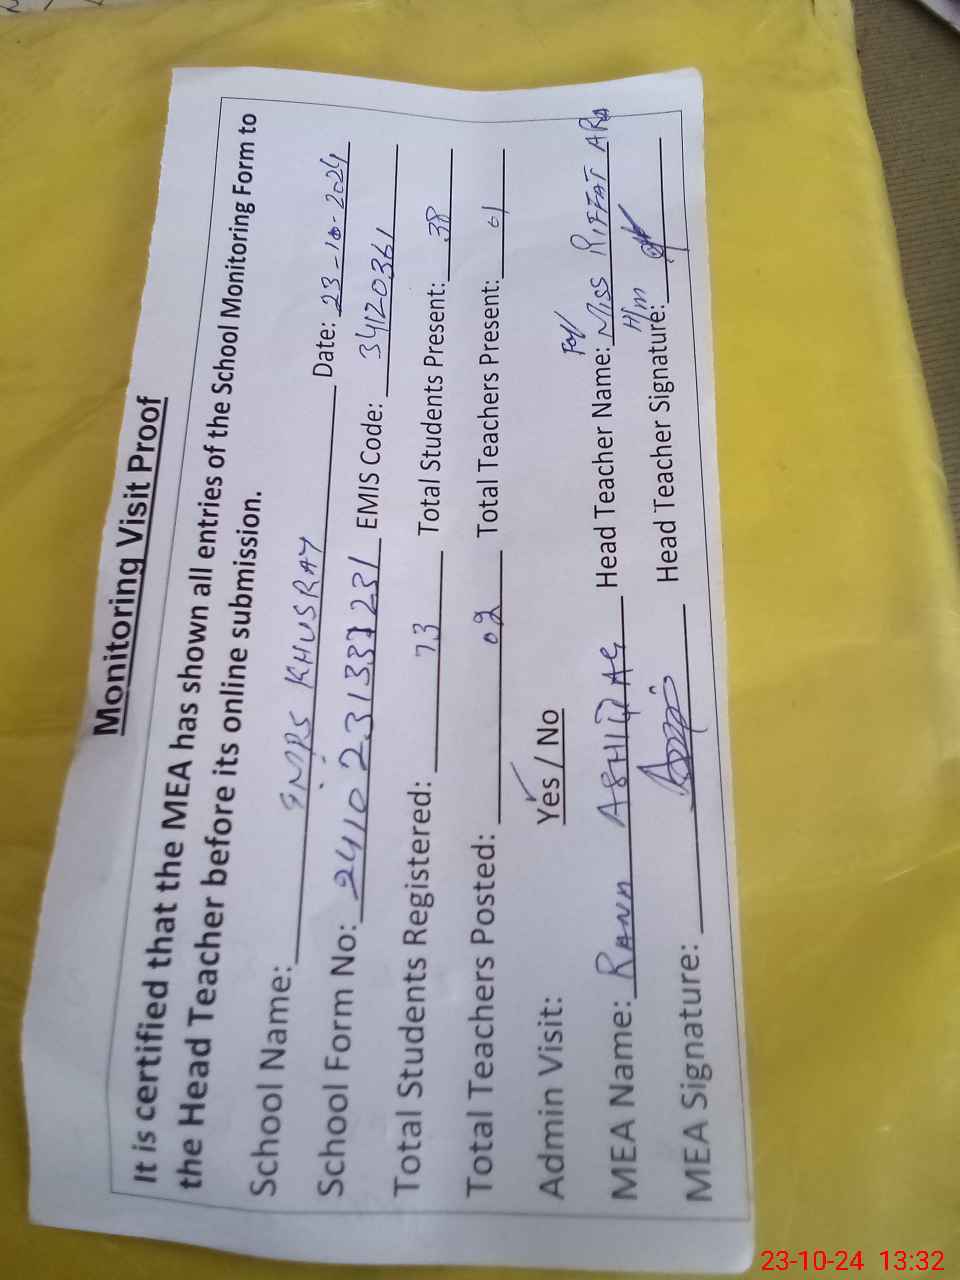 Monitoring Visit Proof
It is certified that the MEA has shown all entries of the School Monitoring Form to
the Head Teacher before its online submission.
School Name: GMPS KHUSRAY Date: 23-10-2024
School Form No: EMIS Code: 34120361
Total Students Registered: 73 Total Students Present: 38
Total Teachers Posted: 02 Total Teachers Present: 01
Admin Visit: Yes / No
For
MEA Name: RANA ASHFAQ Head Teacher Name: MISS RIFFAT ARA
H/m
MEA Signature: Head Teacher Signature:
23-10-24 13:32